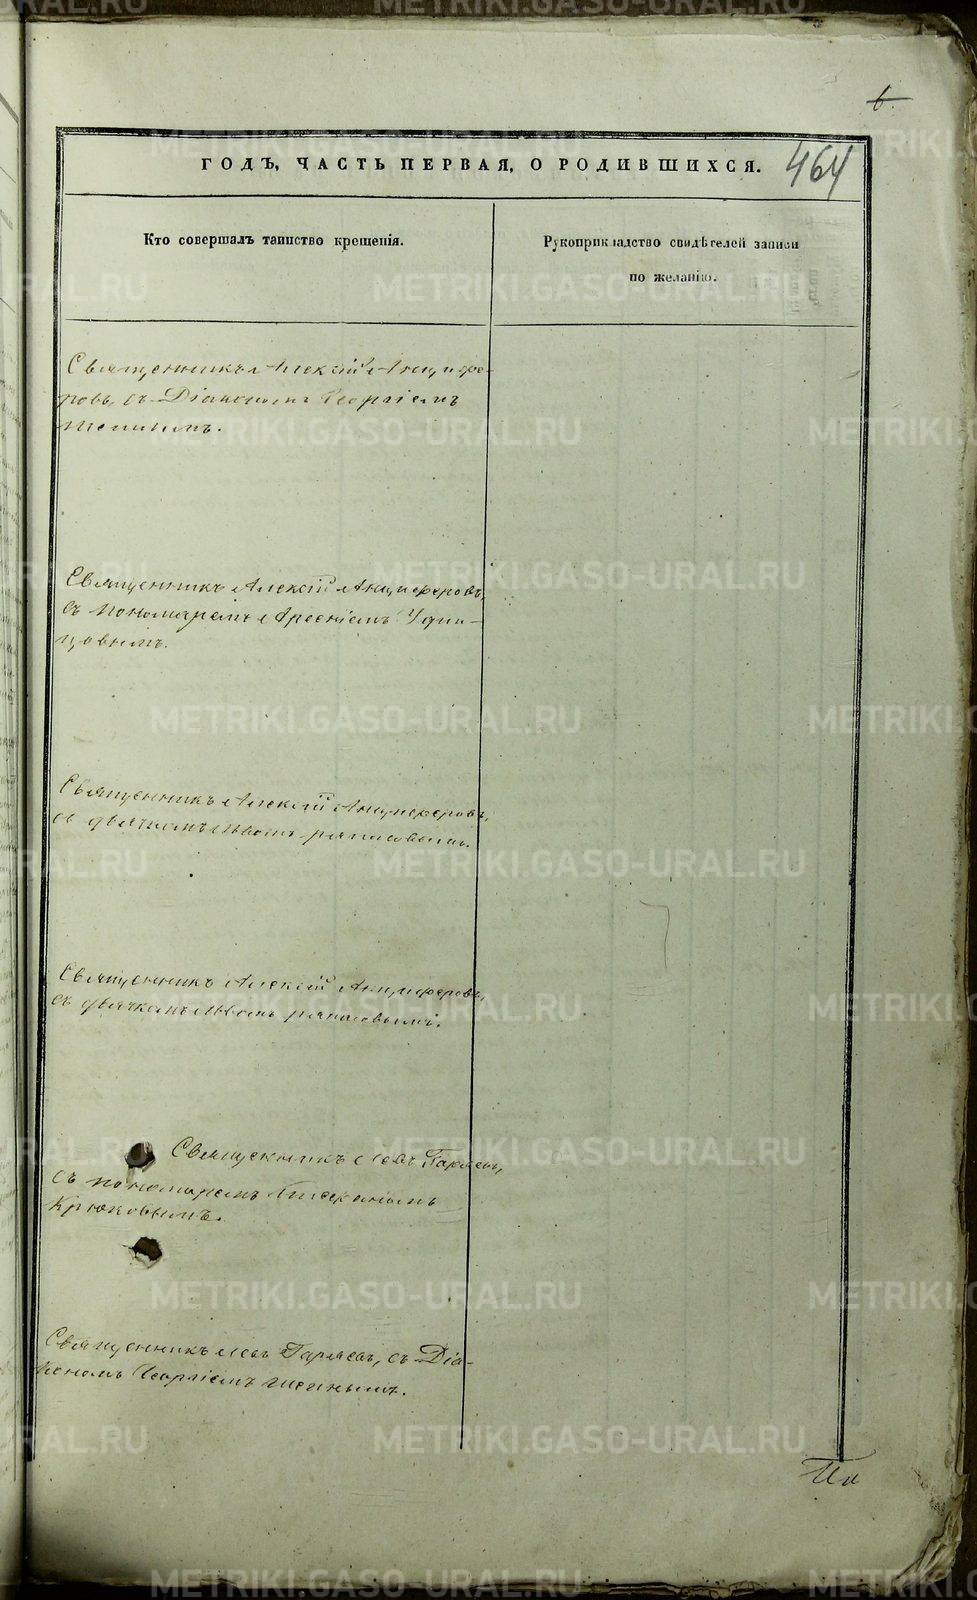 6.
464
ГОДЪ, ЧАСТЬ ПЕРВАЯ, О РОДИВШИХСЯ.
Кто совершалъ таинство крещенія.
Рукоприкладство свидѣтелей записи
по желанію.
Священникъ Алексій Анциφе-
ровъ, съ Діакономъ Георгіемъ
Священникъ Алексій Анциφеровъ,
съ пономаремъ Арсеніемъ Удин-
цовымъ.
Священникъ Алексій Анциφеровъ,
съ дьячкомъ Львомъ
Священникъ Алексій Анциφеровъ,
съ дьячкомъ Львомъ
Священникъ Левъ Гаряевъ,
съ пономаремъ
Крюковымъ.
Священникъ Левъ Гаряевъ, съ Діа-
кономъ Георгіемъ
METRIKI.GASO-URAL.RU